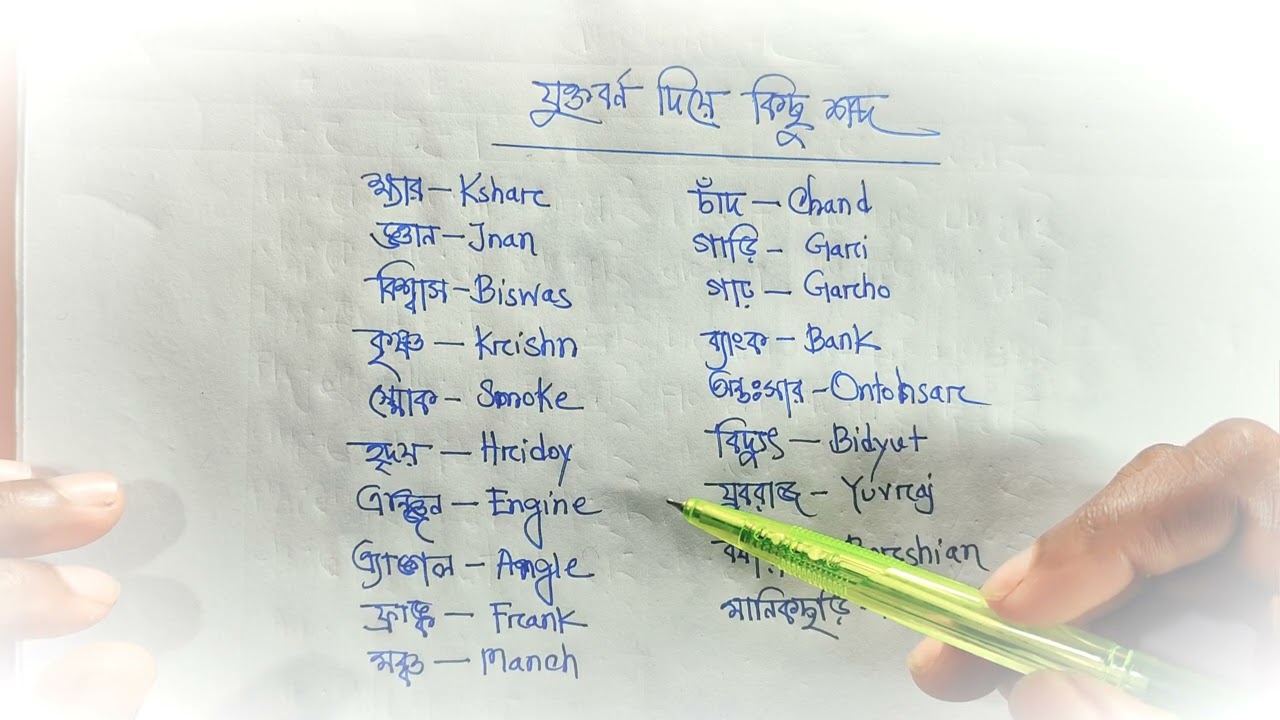 যুক্তবর্ন দিয়ে কিছু শব্দ
ক্ষ্যার – Ksharc
জ্ঞান – Jnan
বিশ্বাস – Biswas
কৃষ্ণ – Krcishn
স্মোক – Smoke
হৃদয় – Hrcidoy
এঞ্জিন – Engine
এ্যাঙ্গেল – Angle
ফ্রাঙ্ক – Frcank
মঞ্চ – Manch
চাঁদ – Chand
গাড়ি – Garci
গাঢ় – Garcho
ব্যাংক – Bank
অন্তঃসার – Ontohsarc
বিদ্যুৎ – Bidyut
যুবরাজ – Yuvrcaj
মানিকছড়ি